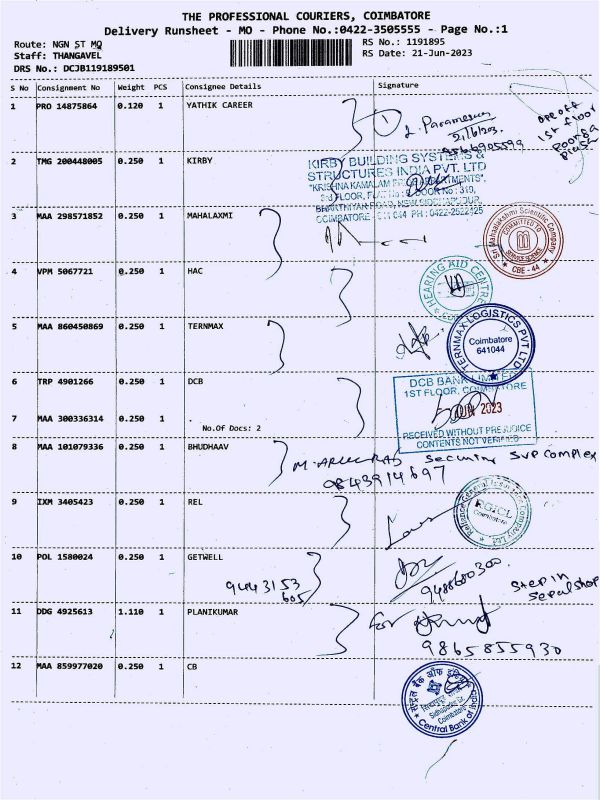 THE PROFESSIONAL COURIERS, COIMBATORE
Delivery Runsheet - MO - Phone No.:0422-3505555 - Page No.:1
Route: NGN ST MQ
Staff: THANGAVEL
DRS No.: DCJB119189501
RS No.: 1191895
RS Date: 21-Jun-2023
S No Consignment No Weight PCS Consignee Details Signature
1 PRO 14875864 0.120 1 YATHIK CAREER
21/6/203.
9566905599
opp off
1st floor
2 TMG 200448005 0.250 1 KIRBY
KIRBY BUILDING SYSTEMS &
STRUCTURES INDIA PVT. LTD
3 MAA 298571852 0.250 1 MAHALAXMI
Sri Mahalakshmi Scientific Company
COMMITTED TO
SERVICE SCIENCE
CBE - 44
4 VPM 5067721 0.250 1 HAC
HEARING AID CENTRE
5 MAA 860450869 0.250 1 TERNMAX
TERNMAX LOGISTICS PVT LTD
Coimbatore
641044
6 TRP 4901266 0.250 1 DCB
DCB BANK LIMITED
1ST FLOOR, COIMBATORE
JUN 2023
RECEIVED WITHOUT PREJUDICE
CONTENTS NOT VERIFIED
7 MAA 300336314 0.250 1 .
No.Of Docs: 2
8 MAA 101079336 0.250 1 BHUDHAAV
Security SVP complex
9843914697
9 IXM 3405423 0.250 1 REL
Reliance General Insurance Company Ltd.
RGICL
Coimbatore
10 POL 1580024 0.250 1 GETWELL
9443153
605
9488680300
Step in
11 DDG 4925613 1.110 1 PLANIKUMAR
for
9865855930
12 MAA 859977020 0.250 1 CB
सेन्ट्रल बैंक ऑफ इंडिया
Coimbatore
Central Bank of India